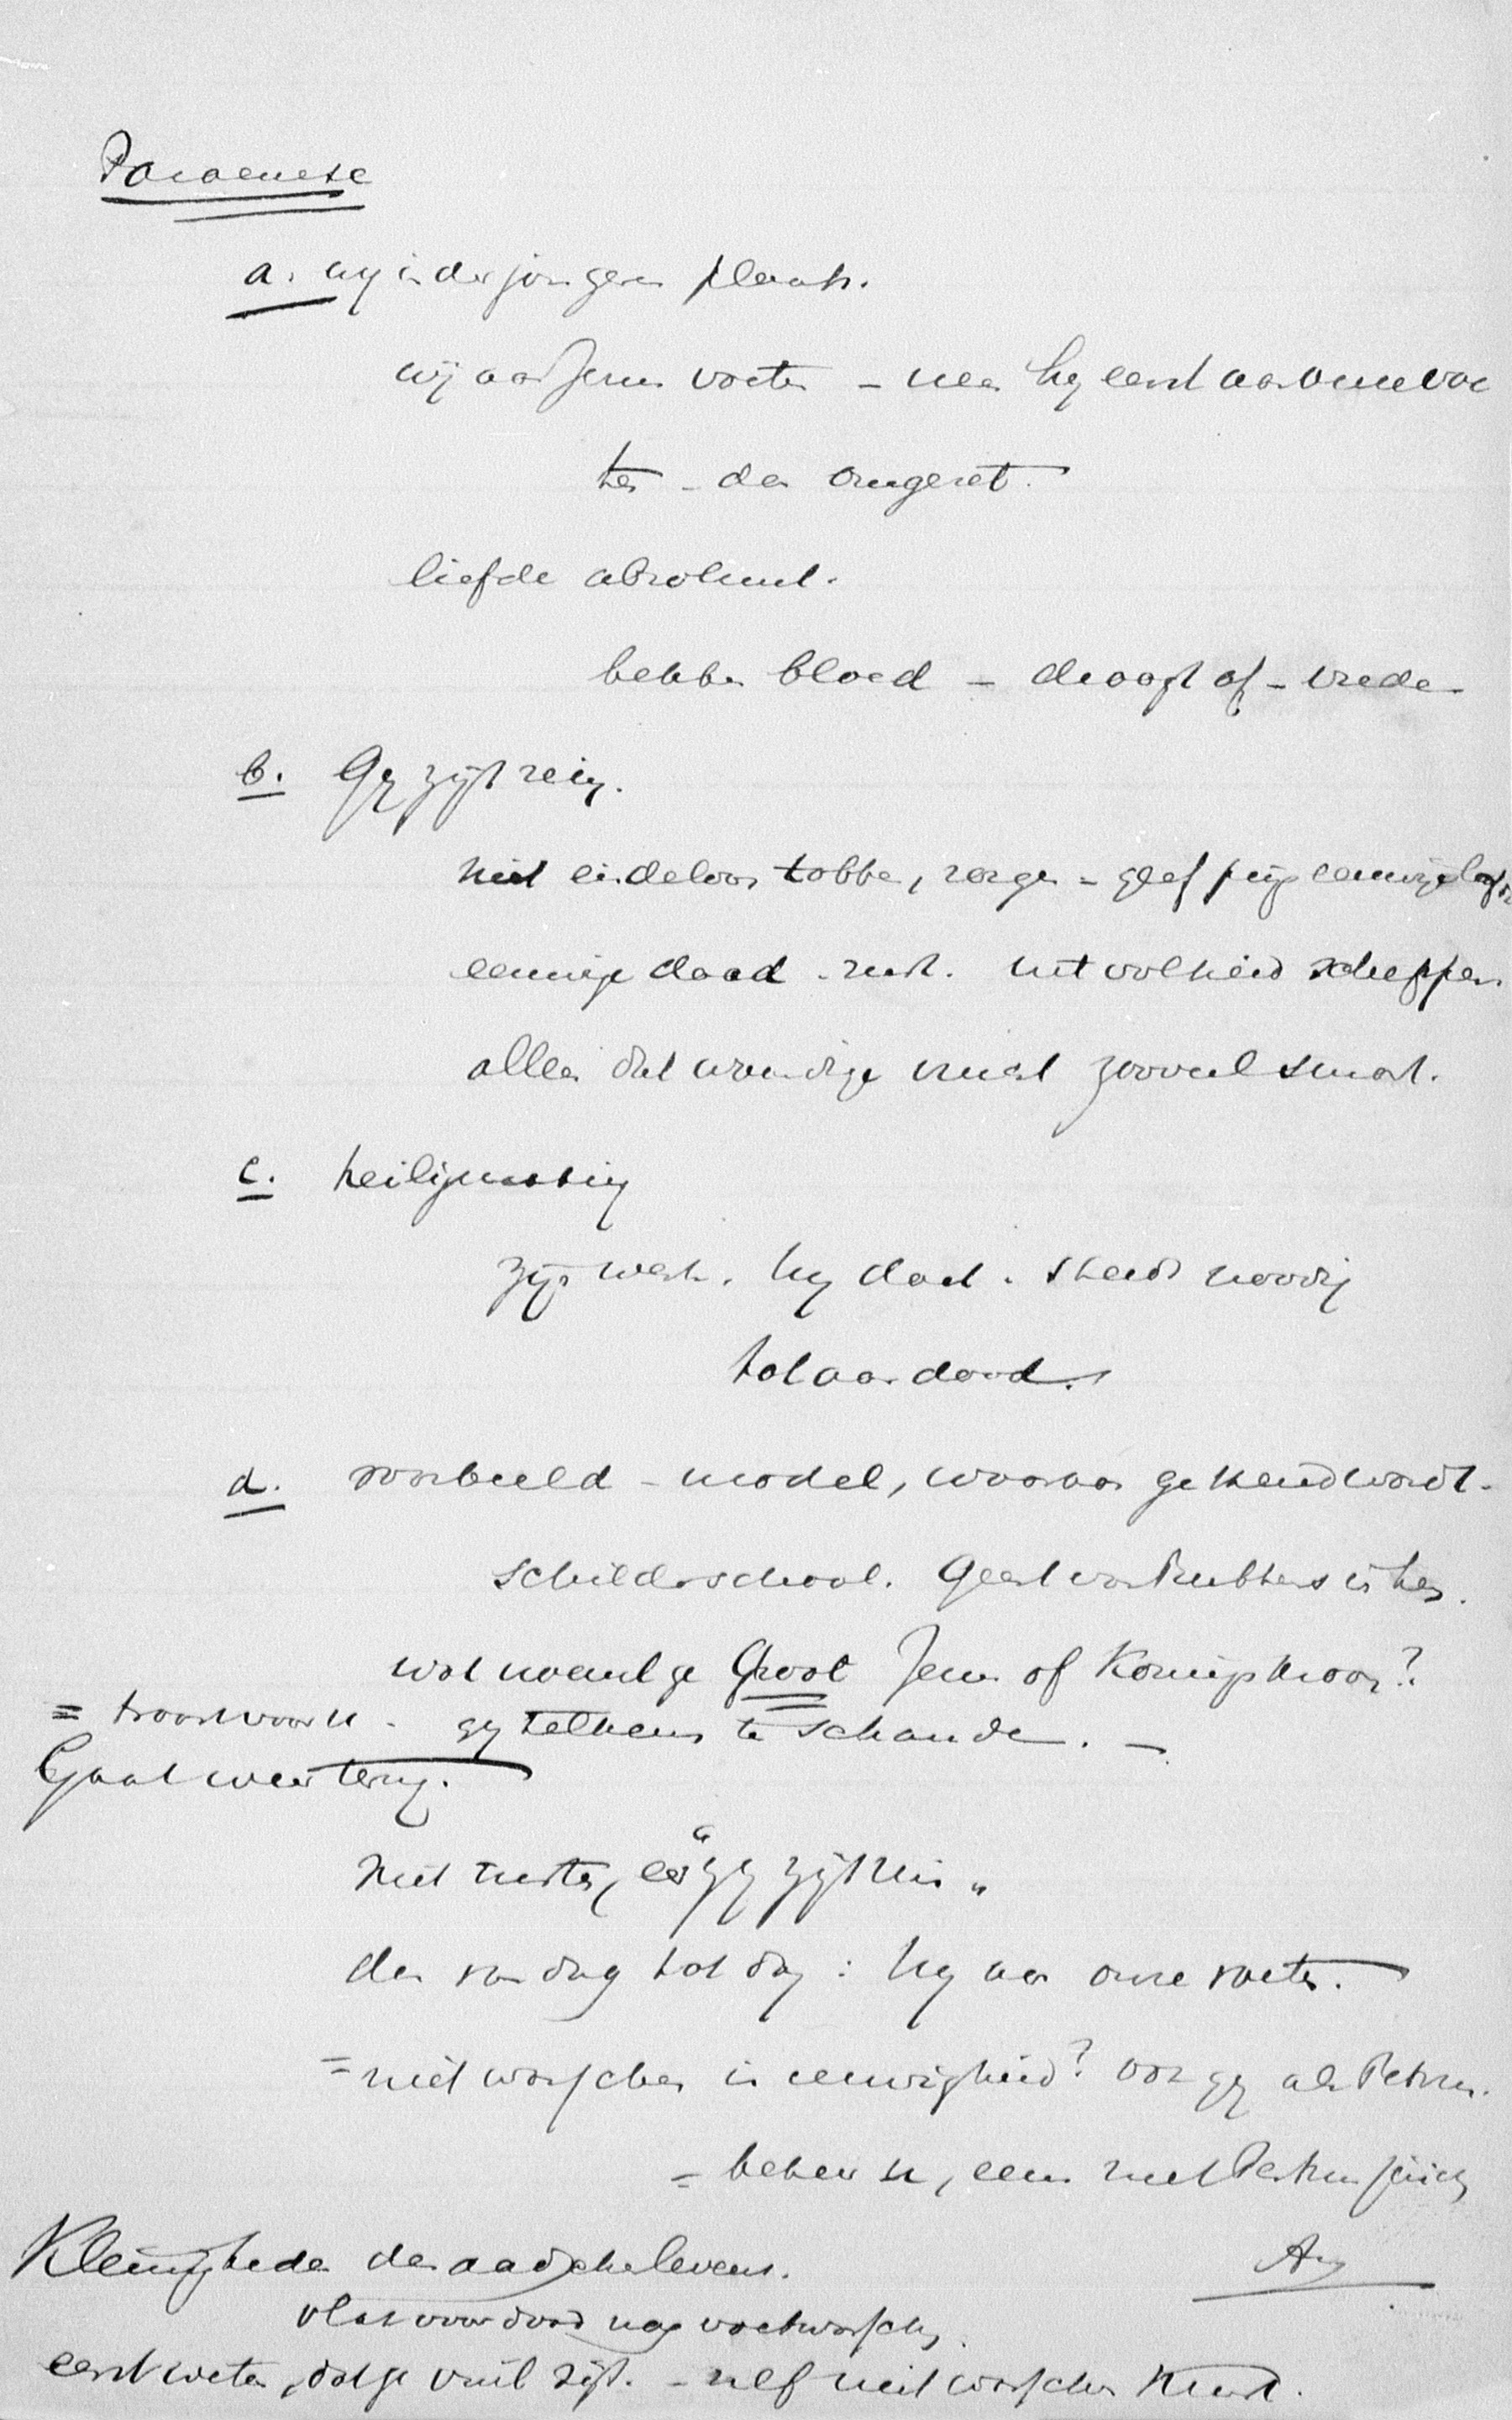 Paraenese
a. wij in der jongeren plaats.
wij aan Jezus voeten – neen hij eerst aan onze voe
ten – dan omgezet.
liefde absoluut.
hebben bloed – droogt af – vrede –
b. Gij zijt rein.
niet eindeloos tobben, zorgen – geef
eeuwige daad – rust. uit volheid scheppen
alleen dat noodige kust zooveel smart.
c. heiligmaking
zijn werk. hij doet. steeds noodig
tot aan dood.
d. voorbeeld – model, waaraan gekend wordt –
schilderschool. Geest van Rubbens is hier.
wat noemt ge Groot Jezus of Koningskroon?
= troost voor u – gij telkens te schande. –
Gaat weer terug.
niet rusten, eer "gij zijt rein"
dan van dag tot dag: hij aan onze voeten.
= niet wasschen in eeuwigheid? ook gij als Petrus.
= beken u, eens met Petrus juich
Kleinigheden des aardschen levens. Am
vlak voor dood nog voetwassching.
eerst weten, dat ge vuil zijt. – zelf niet wasschen kunt.